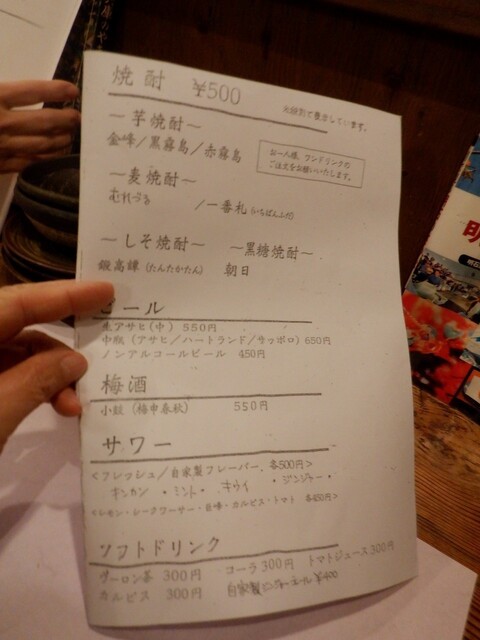 焼酎 ¥500
お一人様、ワンドリンクの
ご注文をお願いいたします。
～芋焼酎～
金峰/黒霧島/赤霧島
～麦焼酎～
むれづる /一番札(いちばんふだ)
～しそ焼酎～ ～黒糖焼酎～
鍛高譚(たんたかたん) 朝日
ビール
生アサヒ(中) 550円
中瓶(アサヒ/ハートランド/サッポロ) 650円
ノンアルコールビール 450円
梅酒
小鼓(梅申春秋) 550円
サワー
<フレッシュ/自家製フレーバー、各500円>
キンカン ・ミント・ キウイ ・ジンジャー・
<レモン・シークワーサー・巨峰・カルピス・トマト 各450円>
ソフトドリンク
ウーロン茶 300円 コーラ300円 トマトジュース300円
カルピス 300円 自家製ジンジャーエール ¥400
明